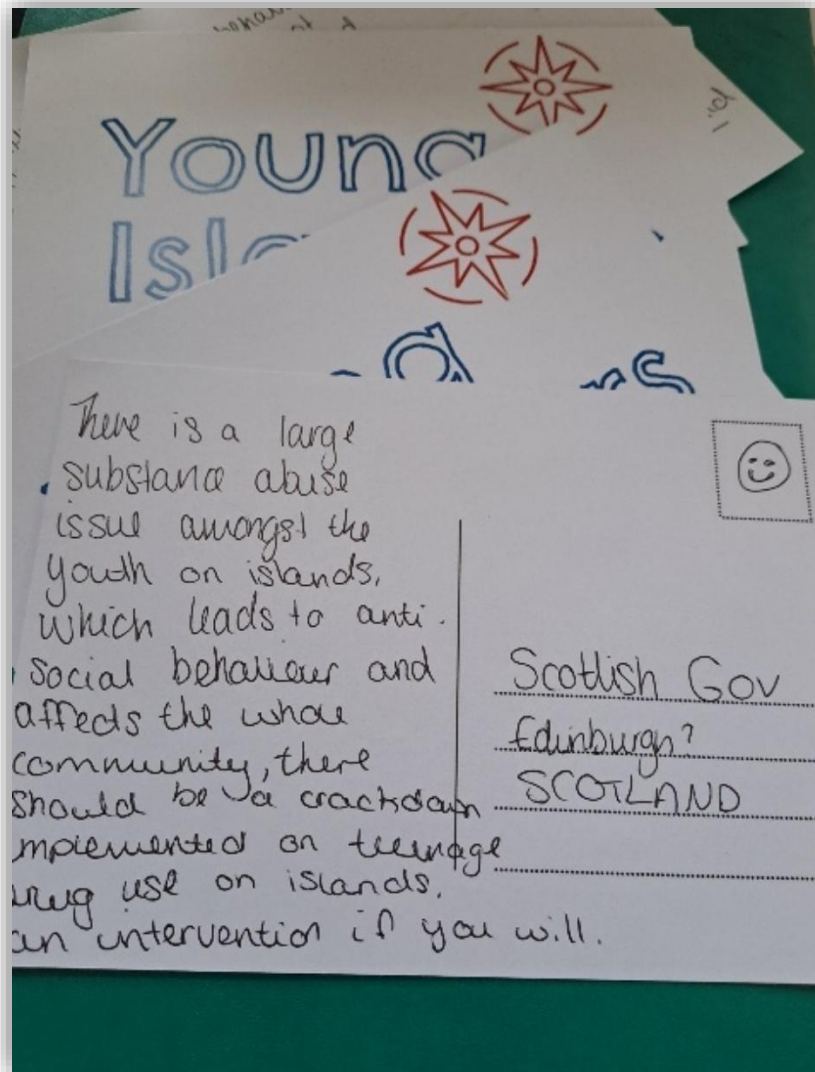 Young
Isla
There is a large
substance abuse
issue amongst the
youth on islands,
which leads to anti-
social behaviour and
affects the whole
community, there
should be a crackdown
implemented on teenage
drug use on islands.
an intervention if you will.
Scottish Gov
Edinburgh?
SCOTLAND